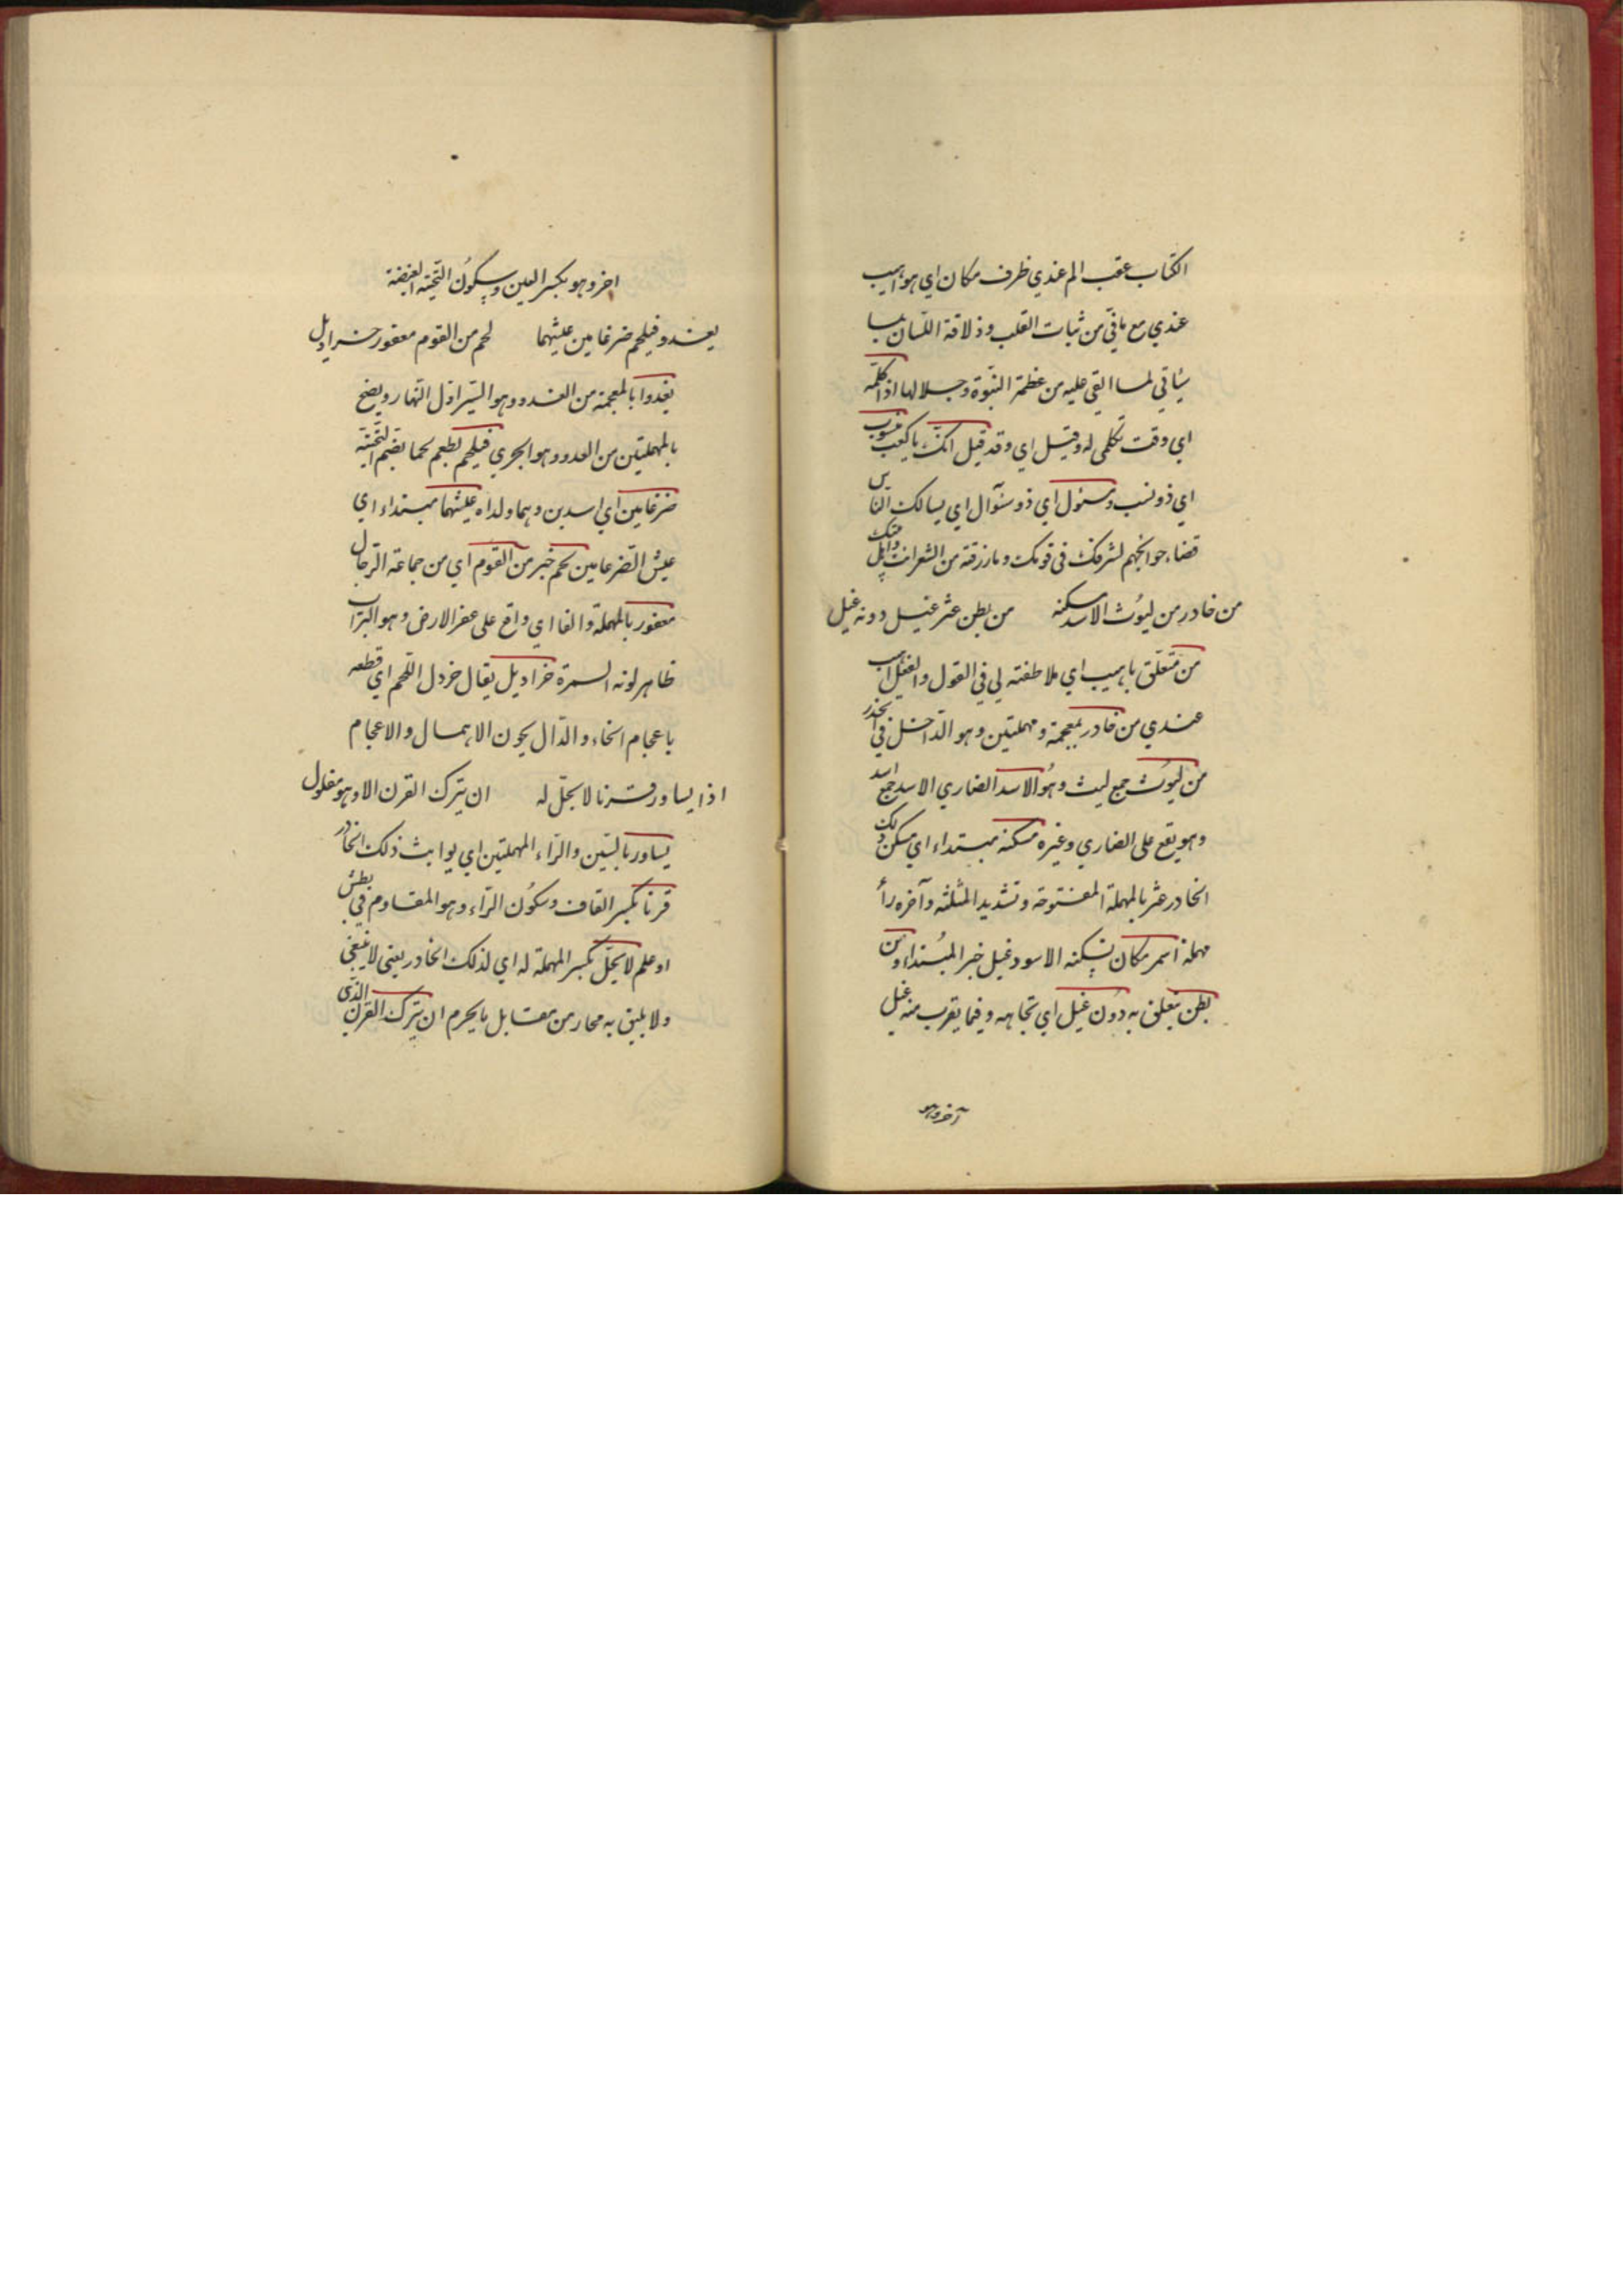 الكتاب عقب الم عندي ظرف مكان اي هو اهيب
عندي مع مافيّ من ثبات القلب وذلاقة اللسان
لما القي عليه من عظمة النبّوة وجلالها اذ اكلّمه
اي وقت تكلمى له وقيل اي وقد قيل انك يا كعب منسوب
اي ذو نسب ومسئول اي ذو سؤال اي يسالك الناس
قضاء حوائجهم لشرفك فى قومك وما رزقته من الشعر انت
من خادر من ليوث الاسد مسكنه من بطن عثر غيل دونه غيل
من متعلّق باهيب اي ملاطفته لي في القول والفعل اهيب
عندي من خادر بمعجمة ومهملتين وهو الدّاخل في الخدر
من ليوث جمع ليث وهو الاسد الضاري الاسد جمع اسد
وهو يقع على الضاري وغيره مسكنه مبتداء اي مسكن ذلك
الخادر عثر بالمهملة المفتوحة وتشديد المثلثه وآخره رأ
مهملة اسم مكان يسكنه الاسود غيل خبر المبتداء ومن
بطن يتعلق به دون غيل اي تجاهه وفيما يقرب منه غيل
آخر وهو
اخر وهو بكسر العين وسكون التحتية الغيضة
يغدو فيلحم ضرغامين عيشهما لحم من القوم معفور خراديل
يغدوا بالمعجمة من الغدو وهو السّير اوّل النّهار ويضح
بالمهملتين من العدو وهو الجري فيلحم يطعم لحما بضم التحتية
ضرغامين اي اسدين وهما ولداه عيشهما مبتداء اي
عيش الضرغامين لحم خبر من القوم اي من جماعة الرّجال
معفور بالمهملة والفا اي واقع على عفر الارض وهو التراب
ظاهر لونه السمرة خراديل يقال خردل اللحم اي قطعه
باعجام الخاء والدّال يجون الاهمال والاعجام
اذا يساور قرنا لا يحلّ له ان يترك القرن الا وهو مفلول
يساور بالسّين والرّاء المهملتين اي يواثب ذلك الخادر
قرنا بكسر القاف وسكون الرّاء وهو المقاوم في بطش
او علم لا يحلّ بكسر المهملة له اي لذلك الخادر يعنى لا ينبغي
ولا يليق به محار من مقابل ما يحرم ان يترك القرن الذّي